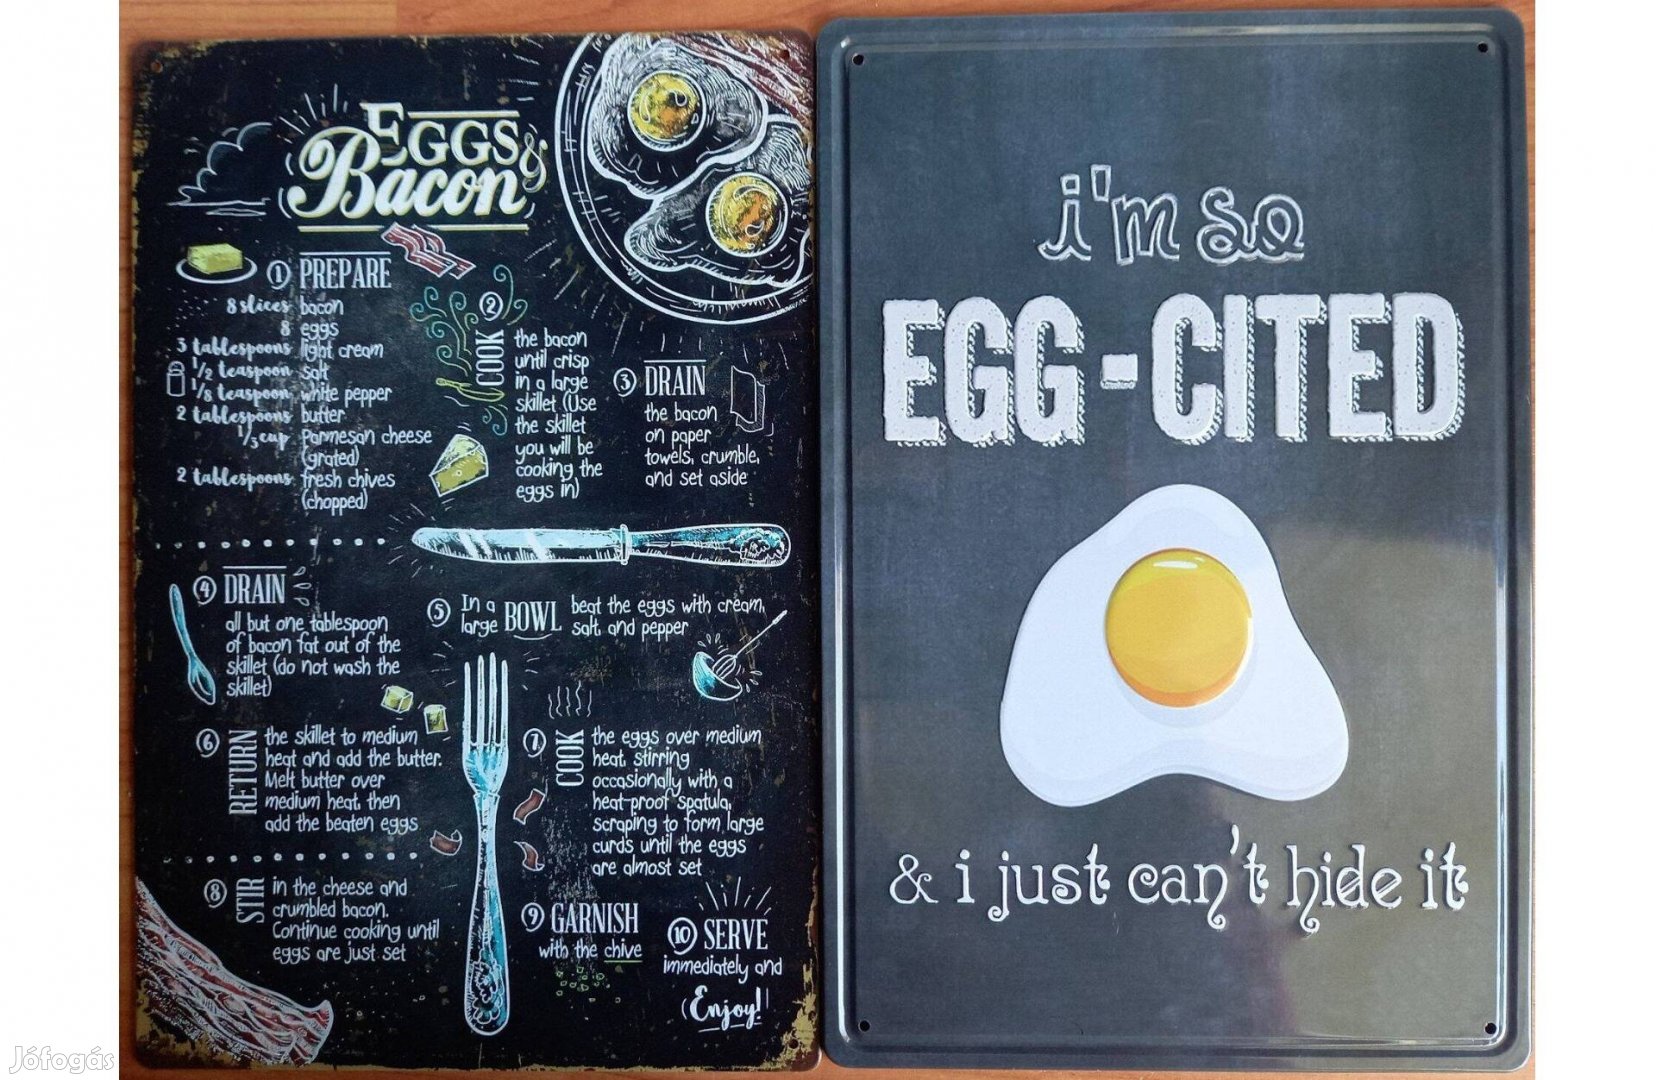 EGGS &
Bacon
1 PREPARE
8 slices bacon
8 eggs
3 tablespoons light cream
1/2 teaspoon salt
1/8 teaspoon white pepper
2 tablespoons butter
1/3 cup Parmesan cheese
(grated)
2 tablespoons fresh chives
(chopped)
2
COOK
the bacon
until crisp
in a large
skillet (Use
the skillet
you will be
cooking the
eggs in)
3 DRAIN
the bacon
on paper
towels, crumble,
and set aside
4 DRAIN
all but one tablespoon
of bacon fat out of the
skillet (do not wash the
skillet)
5 In a large BOWL beat the eggs with cream,
salt, and pepper
6 RETURN
the skillet to medium
heat and add the butter.
Melt butter over
medium heat, then
add the beaten eggs
7 COOK
the eggs over medium
heat, stirring
occasionally with a
heat-proof spatula,
scraping to form large
curds until the eggs
are almost set
8 STIR
in the cheese and
crumbled bacon.
Continue cooking until
eggs are just set
9 GARNISH
with the chive
10 SERVE
immediately and
(Enjoy!)
i'm so
EGG-CITED
& i just can't hide it
Jófogás